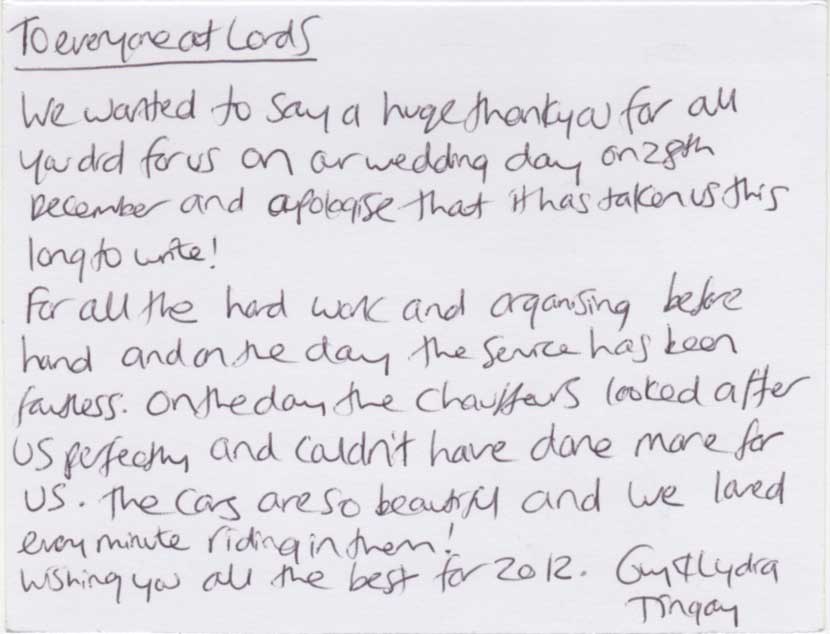 To everyone at Lords
We wanted to say a huge thankyou for all
you did for us on our wedding day on 28th
December and apologise that it has taken us this
long to write!
For all the hard work and organising before
hand and on the day the service has been
faultless. On the day the chauffeurs looked after
us perfectly and couldn't have done more for
us. The cars are so beautiful and we loved
every minute riding in them!
Wishing you all the best for 2012. Guy & Lydia
Tingay